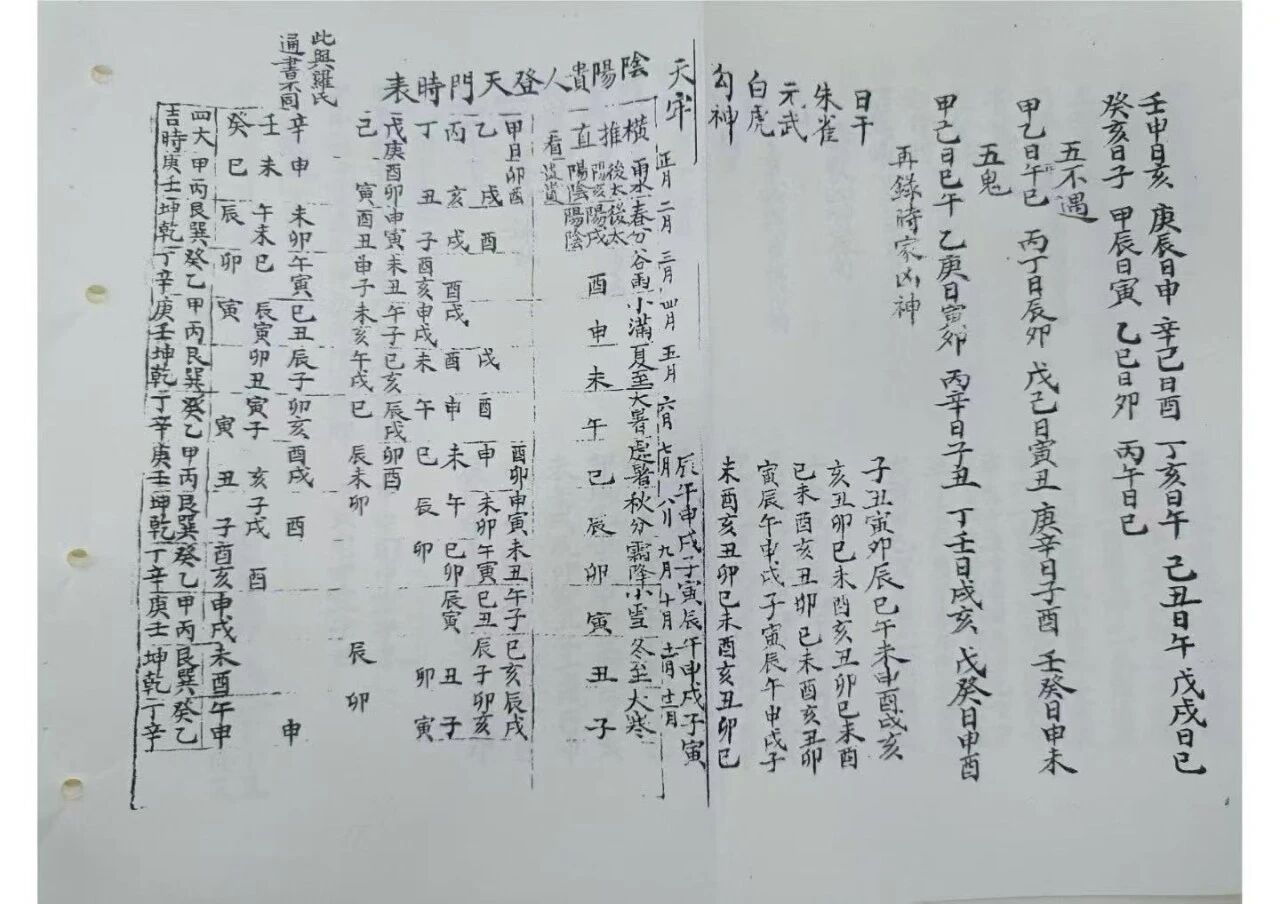 壬申日亥 庚辰日申 辛巳日酉 丁亥日午 己丑日午 戊戌日巳
癸亥日子 甲辰日寅 乙巳日卯 丙午日巳
五不遇
甲乙日午巳 丙丁日辰卯 戊己日寅丑 庚辛日子酉 壬癸日申未
五鬼
甲己日巳午 乙庚日寅卯 丙辛日子丑 丁壬日戌亥 戊癸日申酉
再錄時家凶神
日干 子丑寅卯辰巳午未申酉戌亥
朱雀 亥丑卯巳未酉亥丑卯巳未酉
元武 巳未酉亥丑卯巳未酉亥丑卯
白虎 寅辰午申戌子寅辰午申戌子
勾神 未酉亥丑卯巳未酉亥丑卯巳
天牢 辰午申戌子寅辰午申戌子寅
陰陽貴人登天門時表
正月 二月 三月 四月 五月 六月 七月 八月 九月 十月 十一月 十二月
橫 雨水 春分 谷雨 小滿 夏至 大暑 處暑 秋分 霜降 小雪 冬至 大寒
推 後太 後太
陰亥陽戌 酉 申 未 午 巳 辰 卯 寅 丑 子
直 陽陰陽陰
看
甲旦卯酉 酉卯 申寅 未丑 午子 巳亥 辰戌
乙 戌 酉 戌 酉 申 未卯 午寅 巳丑 辰子 卯亥
丙 亥 戌 酉戌 酉 申 未 午 巳卯 辰寅 丑 子
丁 丑 子 酉亥 申戌 未 午 巳 辰 卯 卯 寅
戊庚酉卯 申寅 未丑 午子 巳亥 辰戌 卯酉
己 寅 酉丑 申子 未亥 午戌 巳 辰未 卯 辰 卯
辛 申 未卯 午寅 巳丑 辰子 卯亥 酉戌 酉 申
壬 未 午未 巳 辰寅 卯丑 寅子 亥子 戌 酉
癸 巳 辰 卯 寅 寅 丑 子 酉亥 申戌 未酉 午申
四大 甲丙艮巽 癸乙 甲丙艮巽 癸乙 甲丙艮巽 癸乙 甲丙艮巽 癸乙
吉時 庚壬坤乾 丁辛 庚壬坤乾 丁辛 庚壬坤乾 丁辛 庚壬坤乾 丁辛
此與羅氏
通書不同